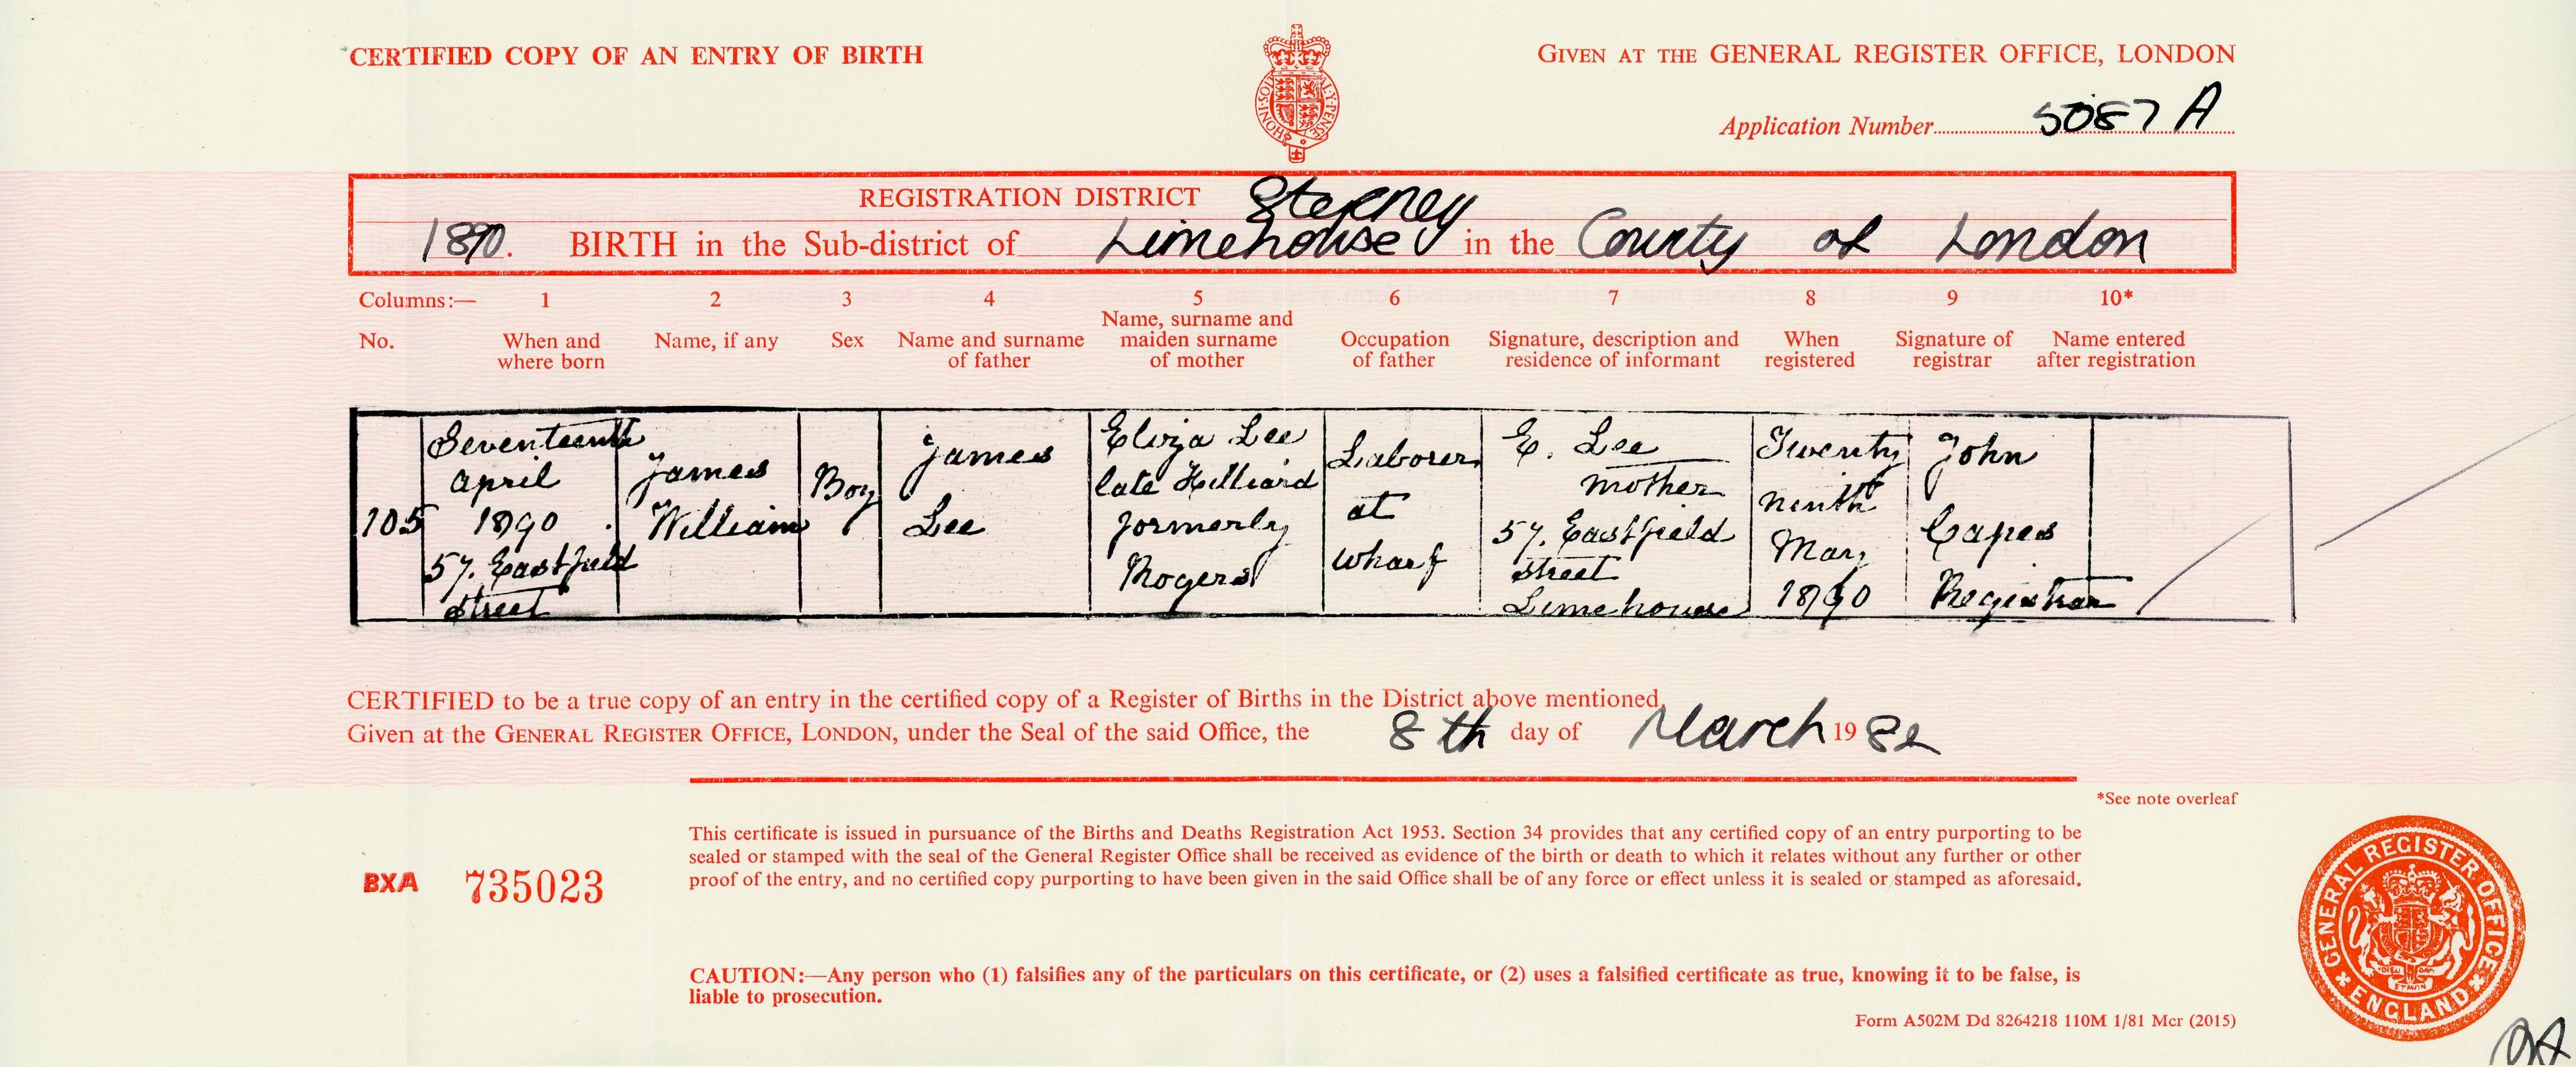 CERTIFIED COPY OF AN ENTRY OF BIRTH
GIVEN AT THE GENERAL REGISTER OFFICE, LONDON
Application Number 5087 A
REGISTRATION DISTRICT Stepney
1890. BIRTH in the Sub-district of Limehouse in the County of London
Columns:— 1 2 3 4 5 6 7 8 9 10*
No.
When and
where born
Name, if any
Sex
Name and surname
of father
Name, surname and
maiden surname
of mother
Occupation
of father
Signature, description and
residence of informant
When
registered
Signature of
registrar
Name entered
after registration
105
Seventeenth
April
1890
57. Eastfield
Street
James
William
Boy
James
Lee
Eliza Lee
late Hilliard
formerly
Rogers
Laborer
at
Wharf
E. Lee
Mother
57. Eastfield
Street
Limehouse
Twenty
ninth
May
1890
John
Capes
Registrar
CERTIFIED to be a true copy of an entry in the certified copy of a Register of Births in the District above mentioned.
Given at the GENERAL REGISTER OFFICE, LONDON, under the Seal of the said Office, the 8th day of March 1982
*See note overleaf
This certificate is issued in pursuance of the Births and Deaths Registration Act 1953. Section 34 provides that any certified copy of an entry purporting to be
sealed or stamped with the seal of the General Register Office shall be received as evidence of the birth or death to which it relates without any further or other
proof of the entry, and no certified copy purporting to have been given in the said Office shall be of any force or effect unless it is sealed or stamped as aforesaid.
BXA 735023
GENERAL REGISTER OFFICE
ENGLAND
CAUTION:—Any person who (1) falsifies any of the particulars on this certificate, or (2) uses a falsified certificate as true, knowing it to be false, is
liable to prosecution.
Form A502M Dd 8264218 110M 1/81 Mcr (2015)